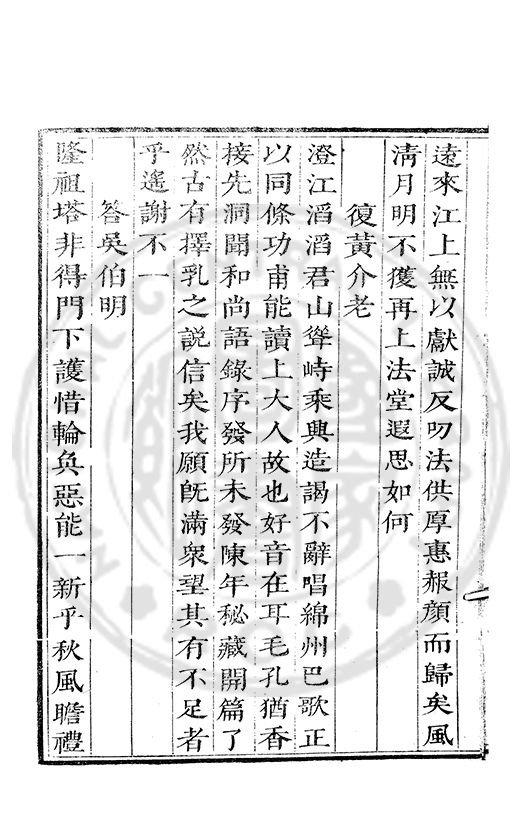 遠來江上無以獻誠反叨法供厚惠赧顏而歸矣風
淸月明不獲再上法堂遐思如何
復黃介老
澄江滔滔君山聳峙乘興造謁不辭唱綿州巴歌正
以同條功甫能讀上大人故也好音在耳毛孔猶香
接先洞聞和尚語錄序發所未發陳年秘藏開篇了
然古有擇乳之說信矣我願旣滿衆望其有不足者
乎遙謝不一
答吳伯明
隆祖塔非得門下護惜輪奐惡能一新乎秋風瞻禮